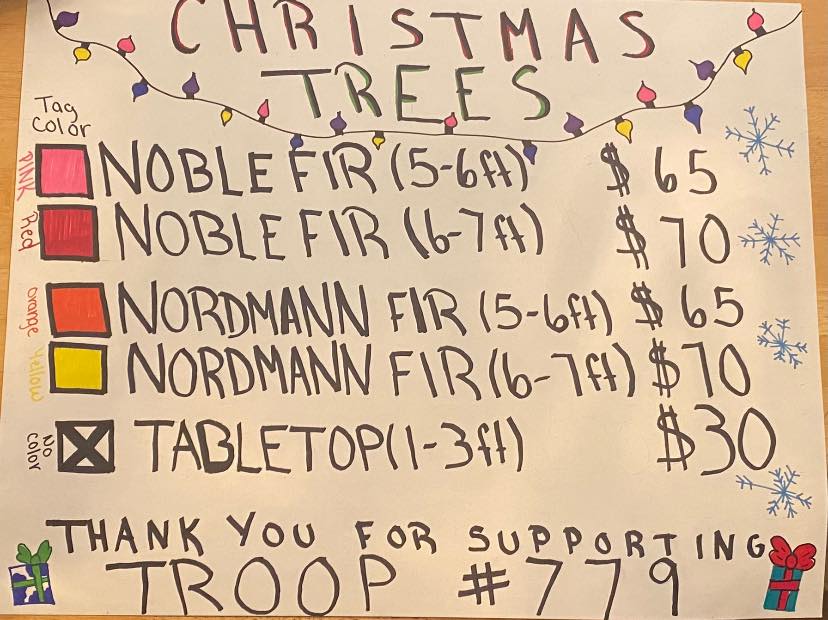 CHRISTMAS
TREES
Tag
Color
PINK NOBLE FIR (5-6ft) $ 65
Red NOBLE FIR (6-7ft) $ 70
Orange NORDMANN FIR (5-6ft) $ 65
Yellow NORDMANN FIR (6-7ft) $70
No
Color TABLETOP (1-3ft) $30
THANK YOU FOR SUPPORTING
TROOP #779